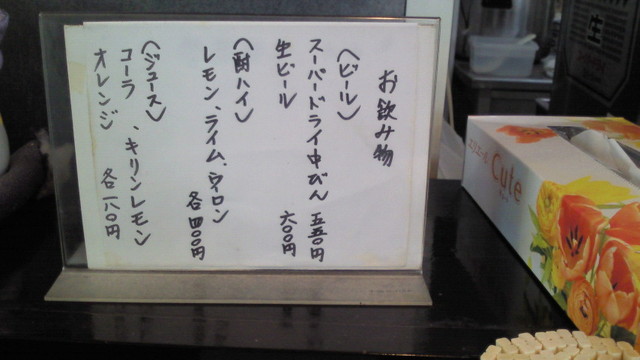 お飲み物
（ビール）
スーパードライ中びん 五五〇円
生ビール 六〇〇円
（酎ハイ）
レモン、ライム、ウーロン
各四〇〇円
（ジュース）
コーラ、キリンレモン
オレンジ 各一八〇円
Cute
生